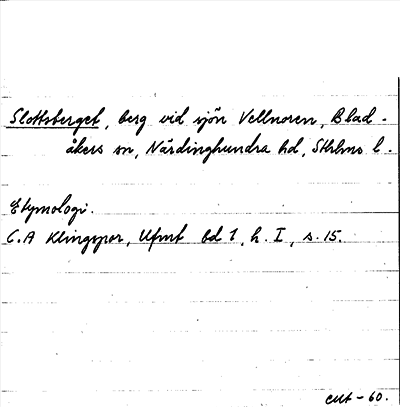 Slottsberget, berg vid sjön Vellnoren, Blad-
åkers sn, Närdinghundra hd, Sthlms l.
Etymologi.
C.A Klingspor, Ufmt bd 1, h. I, s. 15.
-60.